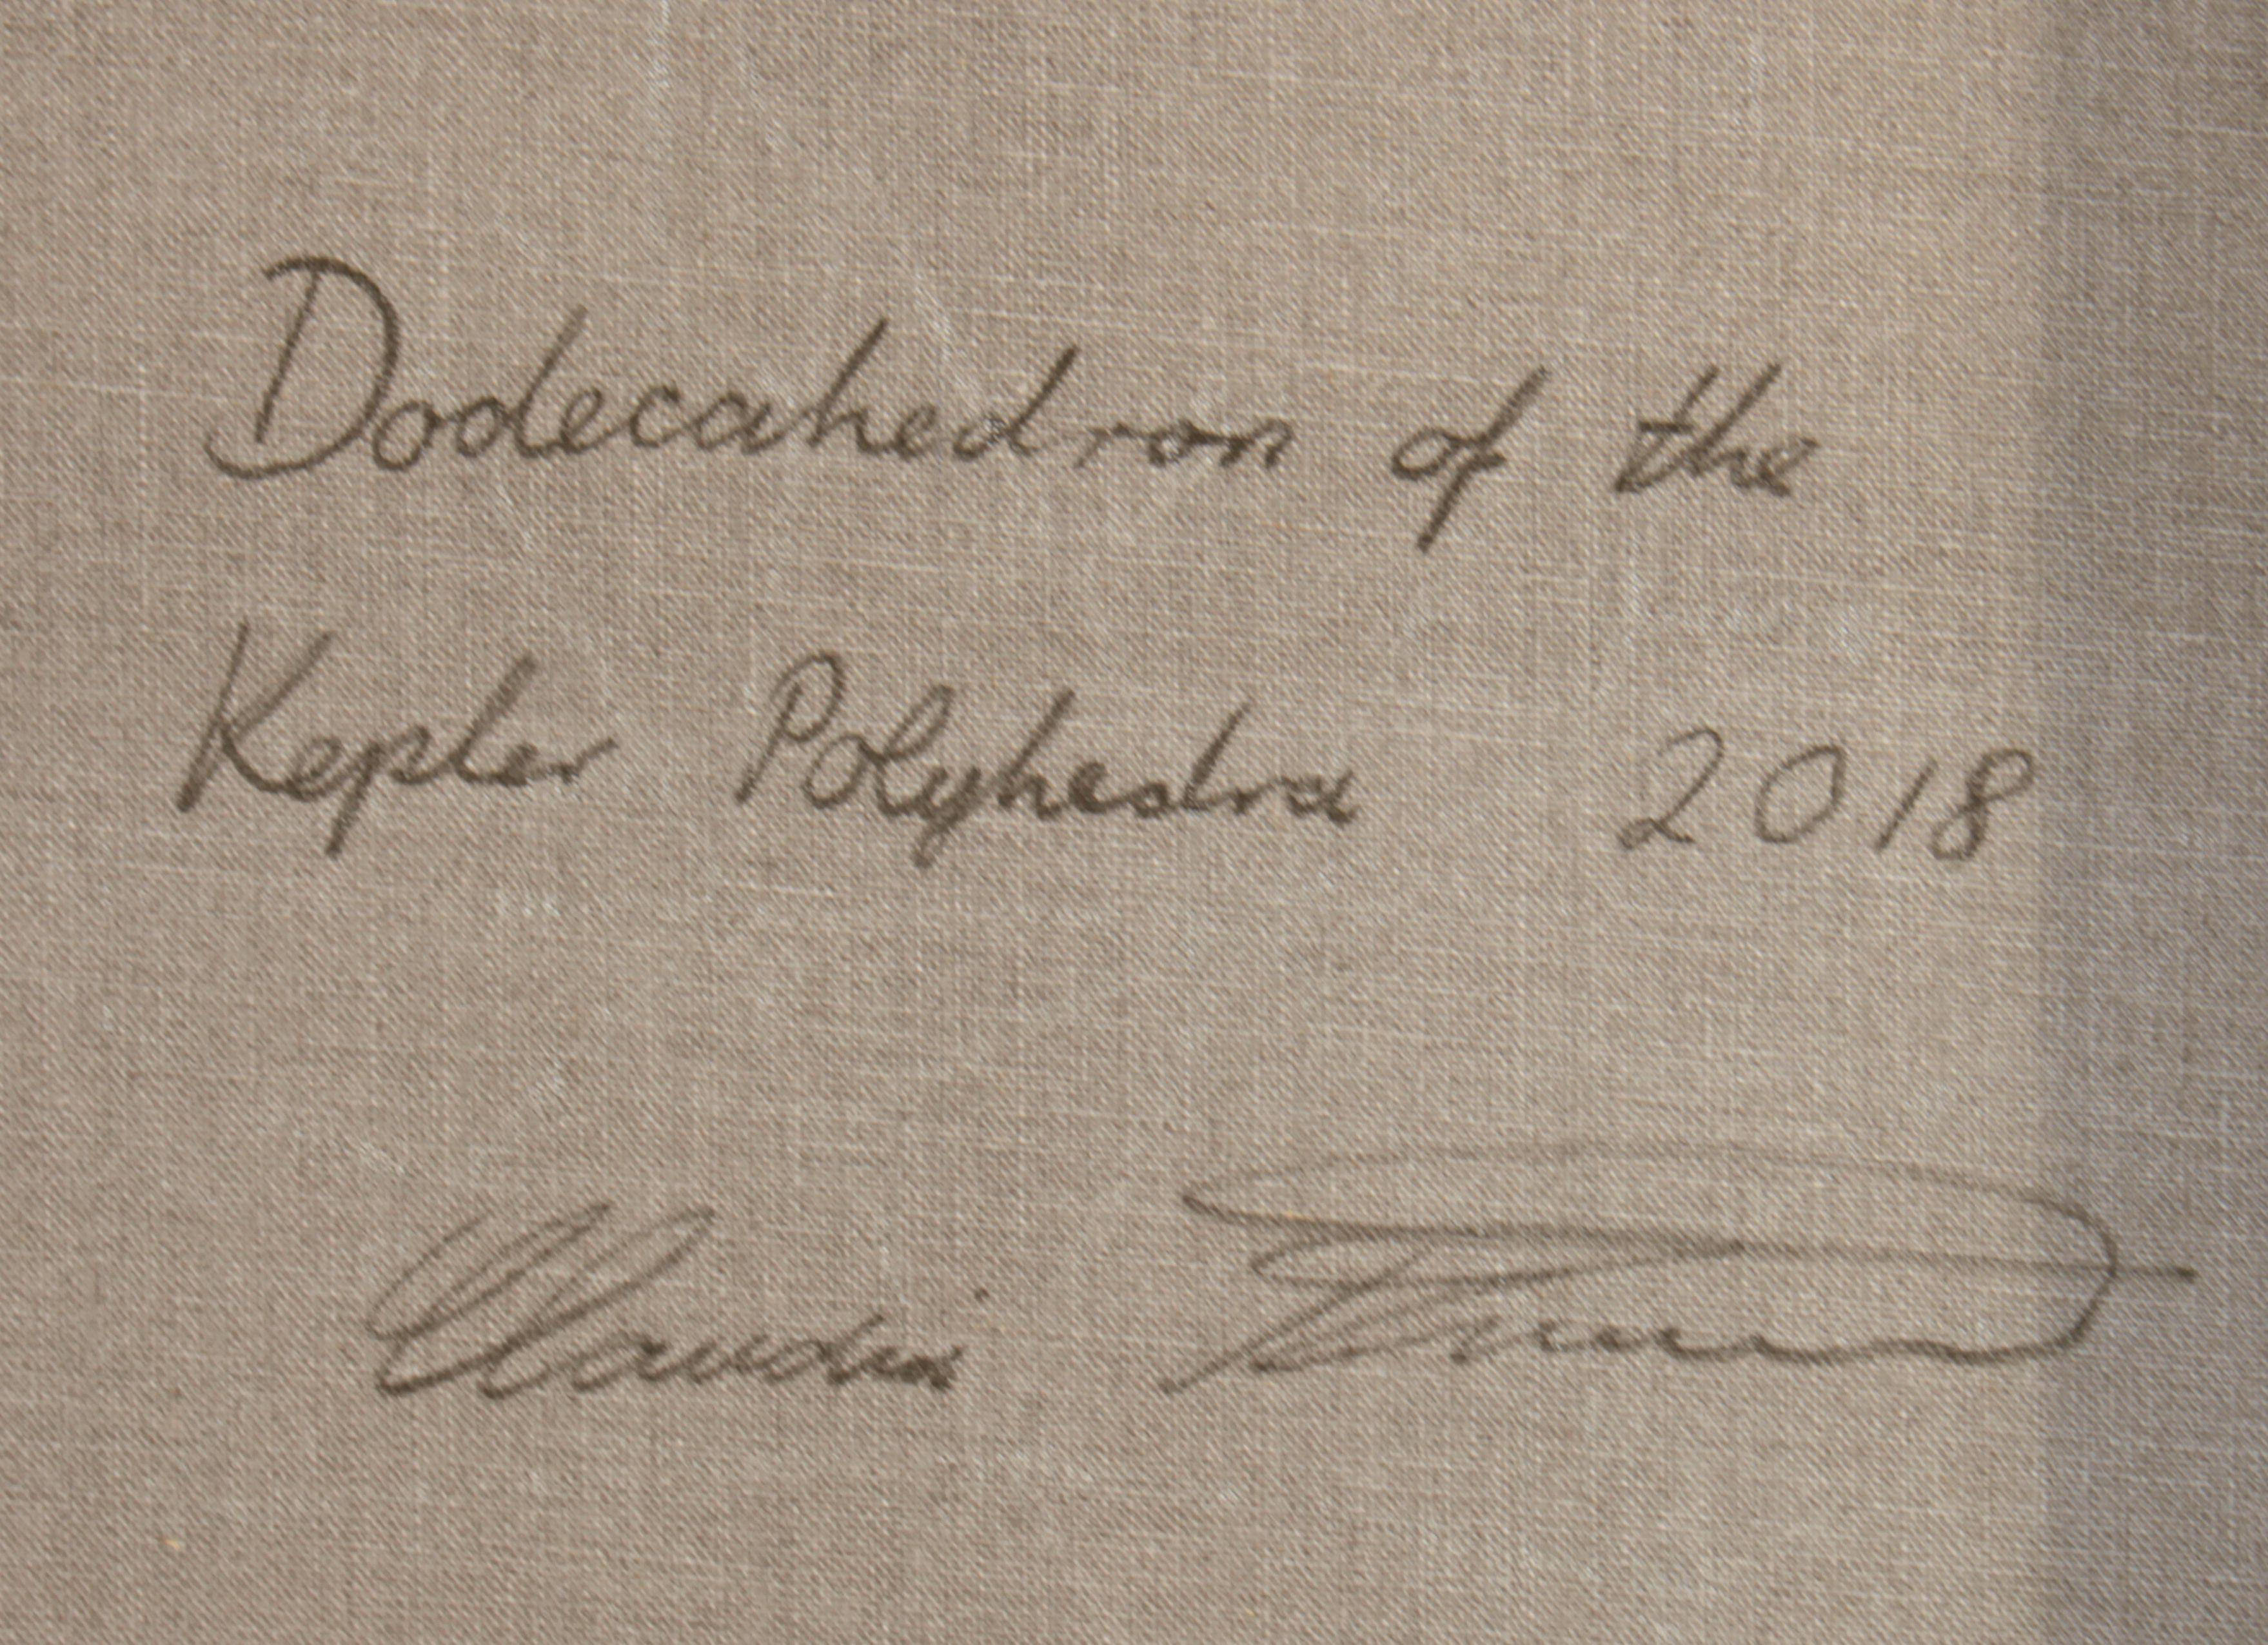 Dodecahedron of the
Kepler Polyhedra 2018
Claudia